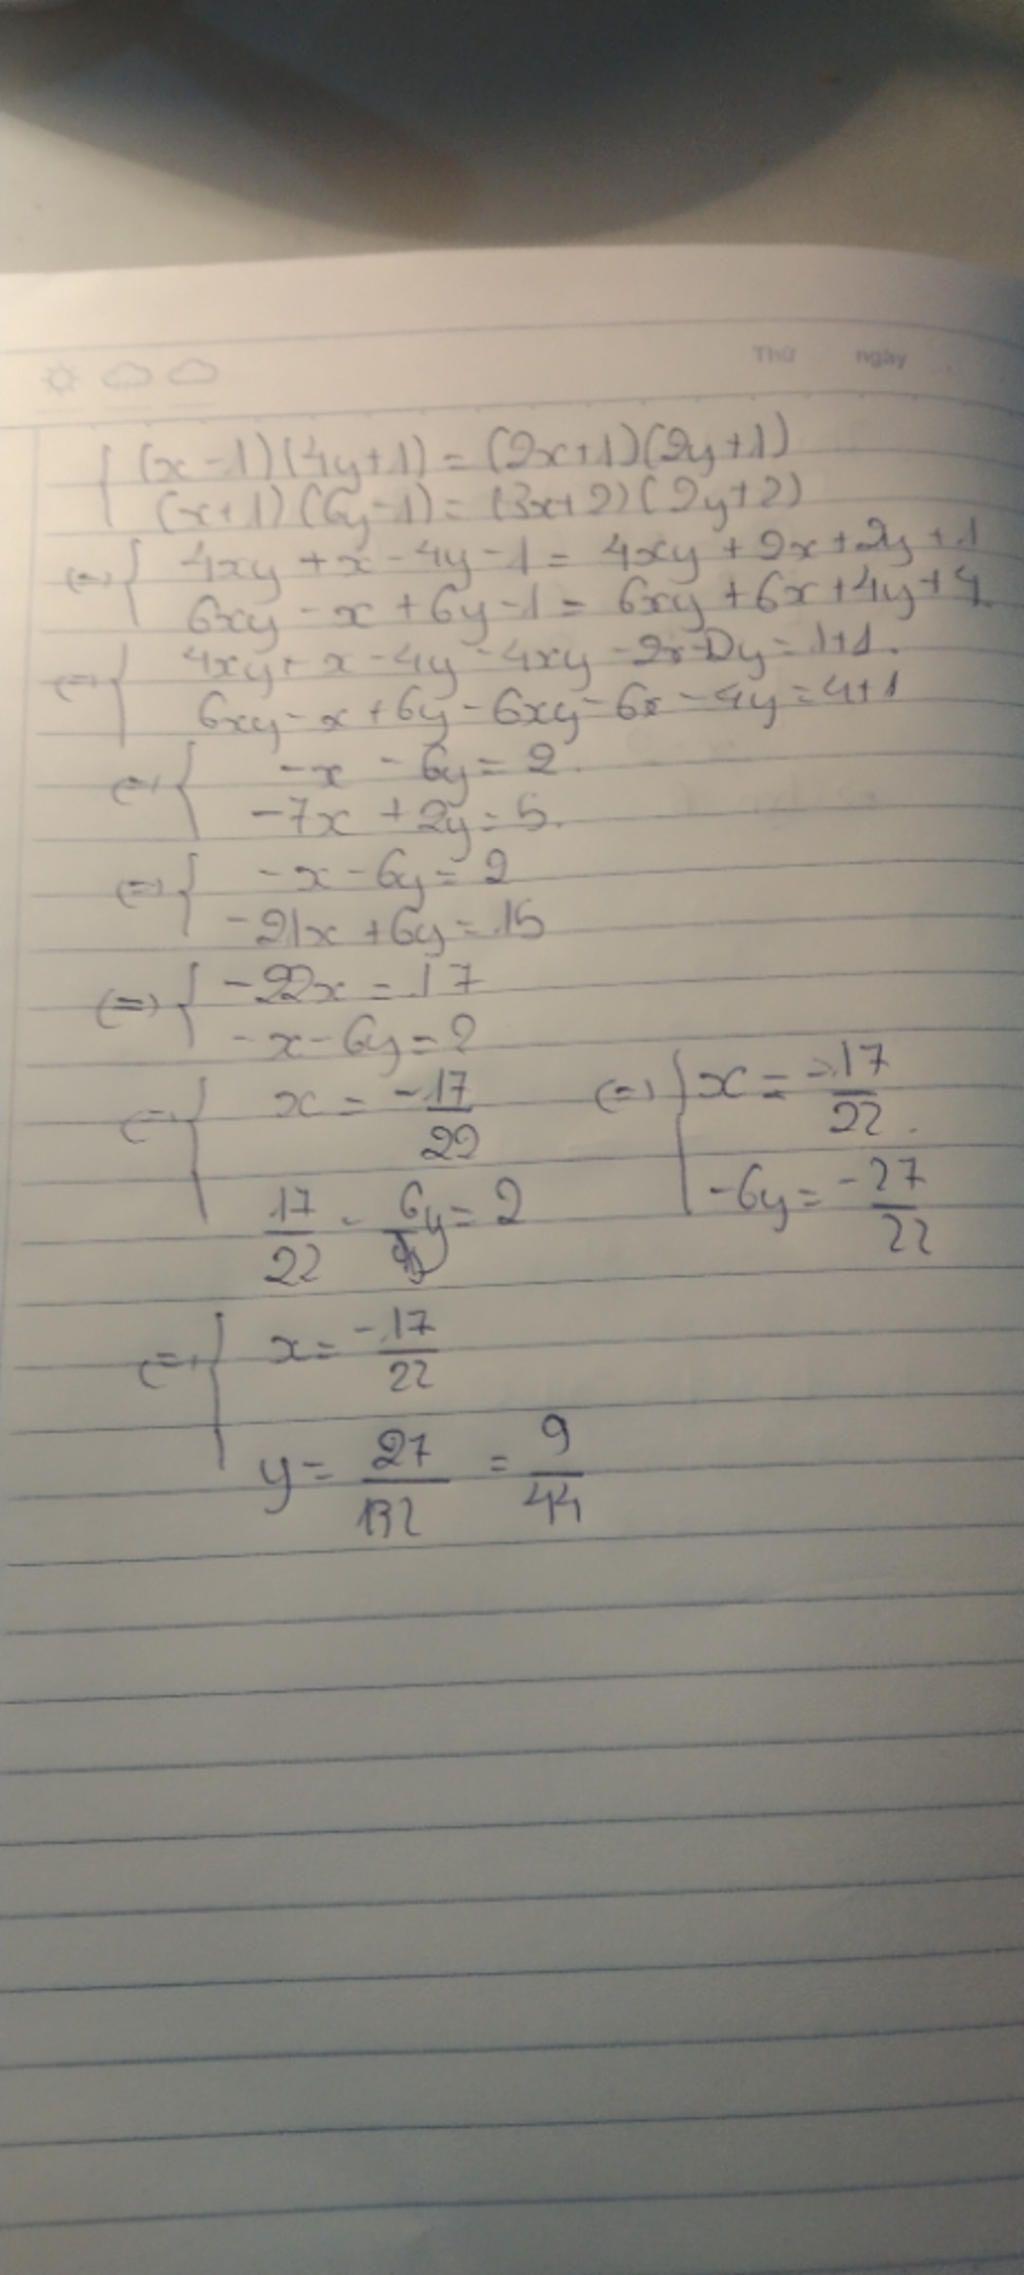 Thứ ngày
(x-1)(4y+1) = (2x+1)(2y+1)
(x+1)(6y-1) = (3x+2)(2y+2)
(=) { 4xy + x - 4y - 1 = 4xy + 2x + 2y + 1
6xy - x + 6y - 1 = 6xy + 6x + 4y + 4
(=) { 4xy + x - 4y - 4xy - 2x - 2y = 1+1.
6xy - x + 6y - 6xy - 6x - 4y = 4+1
(=) { -x - 6y = 2.
-7x + 2y = 5.
(=) { -x - 6y = 2
-21x + 6y = 15
(=) { -22x = 17
-x - 6y = 2
(=) { x = -17/22 (=) { x = -17/22.
17/22 - 6y = 2 -6y = -27/22
(=) { x = -17/22
y = 27/132 = 9/44